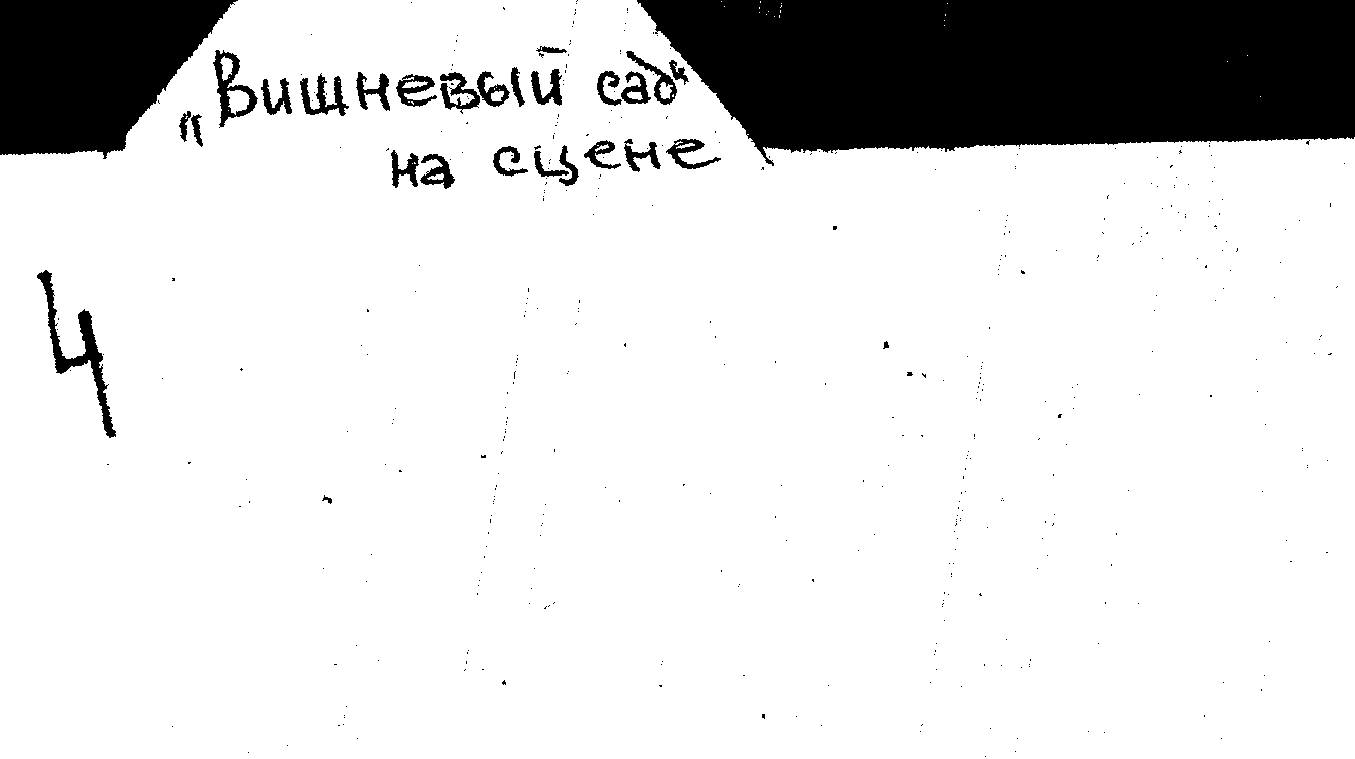 „Вишневый сад“
на сцене
4